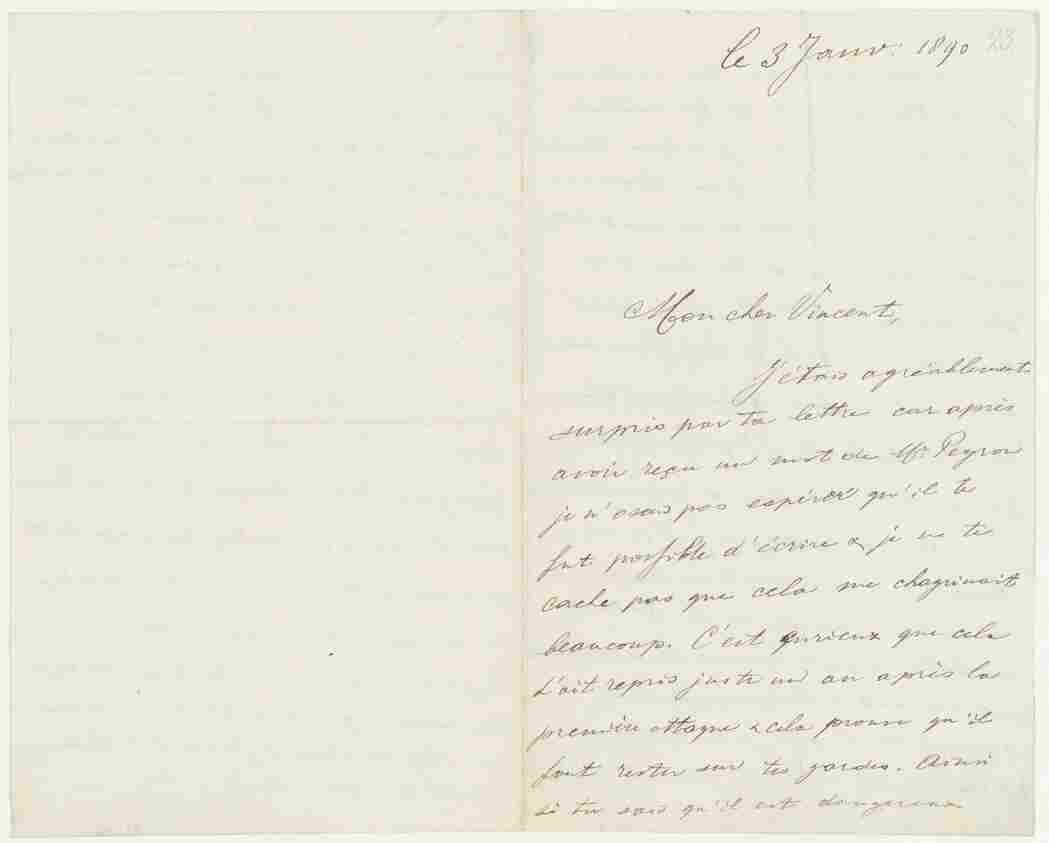 le 3 Janv. 1890 23
Mon cher Vincent,
J'étais agréablement
surpris par ta lettre car après
avoir reçu un mot de Mr. Peyron
je n'osais pas espérer qu'il te
fut possible d'écrire & je ne te
cache pas que cela me chagrinait
beaucoup. C'est curieux que cela
t'ait repris juste un an après la
première attaque & cela prouve qu'il
faut rester sur tes gardes. Ainsi
si tu sais qu'il est dangereux